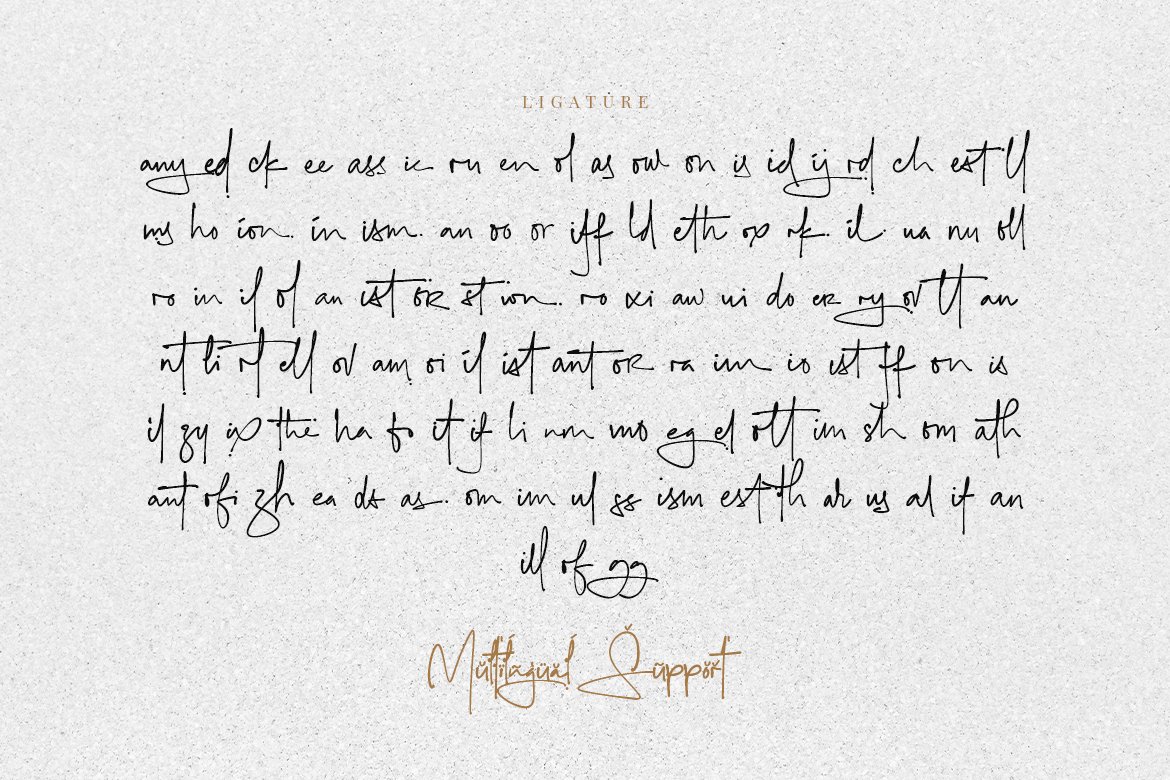 LIGATURE
any ed ck ee ass ic ru en ol as ow on is id ij rd ch est ll
ms ho ion in ism an oo or iff ld eth op rk il ua nu oll
ro in il of an ist or st ion ro xi aw ui do er ry ov tt an
nt li rt ell ol am oi il ist ant or ra im io ist ff on is
il zy ip the ha fo it if li nm mo eg el ott im sh om ath
ant ofi zh ea ds as om im ul ss ism est th ar us al if an
ill of gg
Mŭltĩlãgüäl Šŭppŏřt